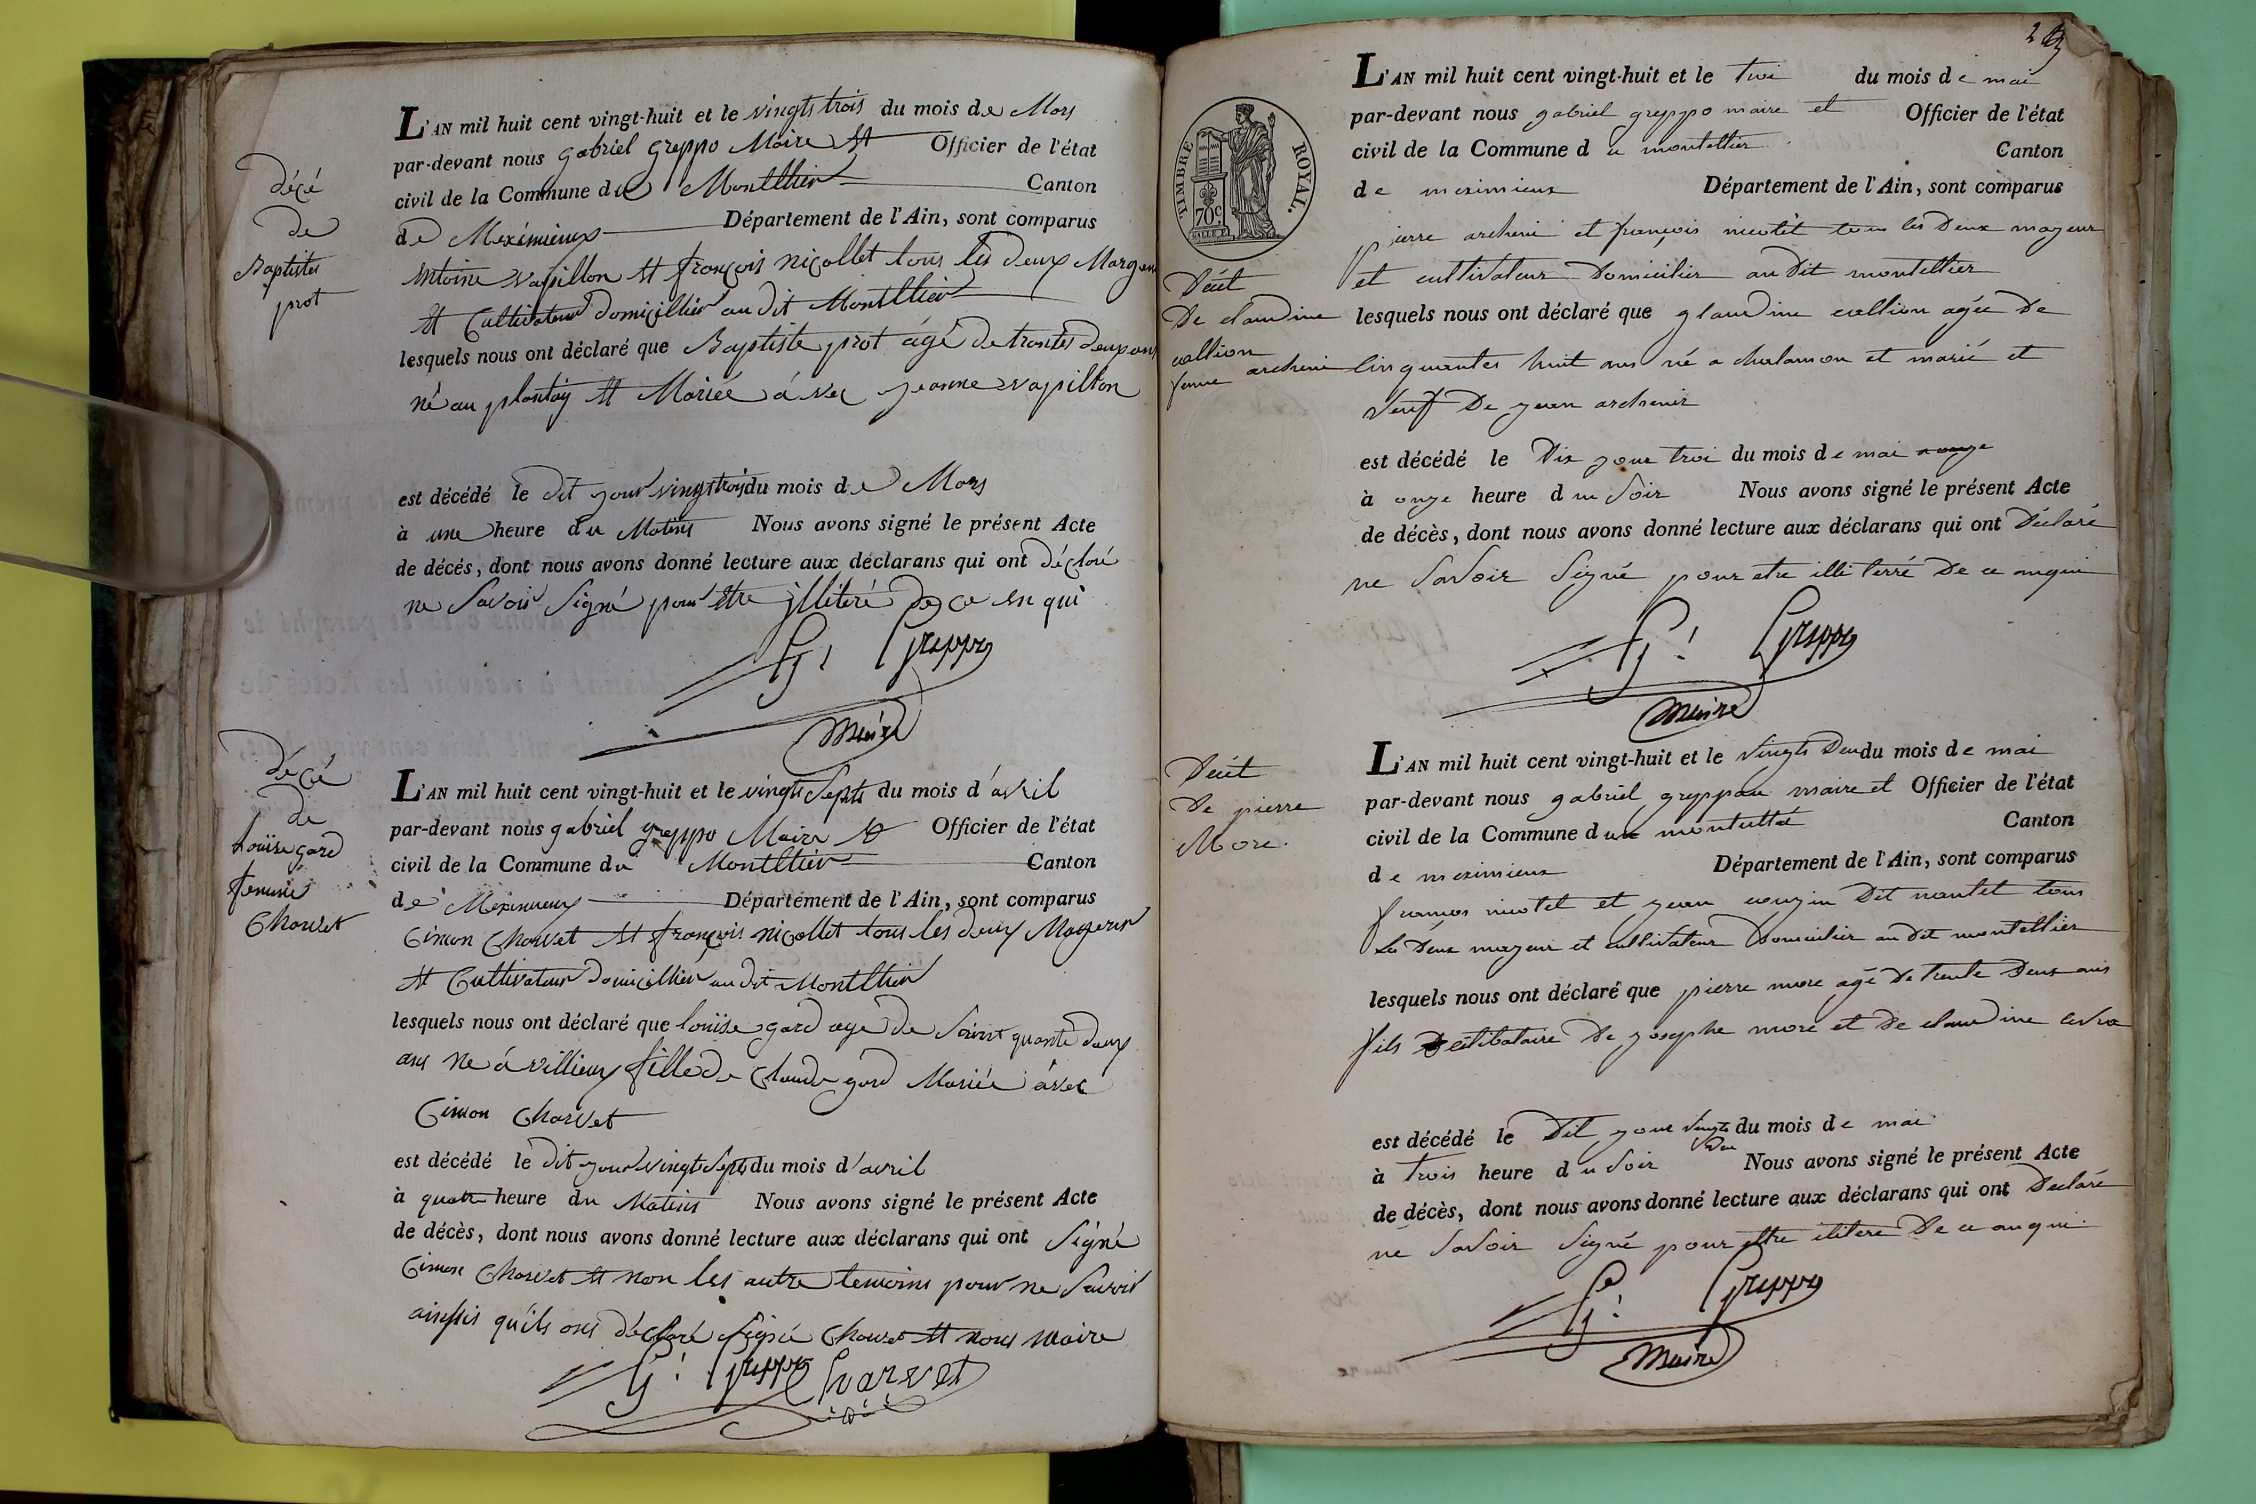 décé
de
Baptiste
prot
L'AN mil huit cent vingt-huit et le vingts trois du mois de Mars
par-devant nous gabriel greppo Maire et Officier de l'état
civil de la Commune du Montllier Canton
de Meximieux Département de l'Ain, sont comparus
Entoine vapillon et françois nicollet tous les deux Mageur
et Cultivateur domicillier au dit Montllier
lesquels nous ont déclaré que Baptiste prot agé de trentes deux ans
né au plantay et Mariée avec jeanne vapillon
est décédé le dit jour vingt trois du mois de Mars
à une heure du Matins Nous avons signé le présent Acte
de décés, dont nous avons donné lecture aux déclarans qui ont déclaré
ne Savoir Signé pour Etre jlliteré de ce en qui
G! Greppo
Maire
décé
de
Louise gard
femme
Charvet
L'AN mil huit cent vingt-huit et le vingts Septs du mois d'avril
par-devant nous gabriel greppo Maire et Officier de l'état
civil de la Commune du Montllier Canton
de Meximieux Département de l'Ain, sont comparus
Cimon Charvet et françois nicollet tous les deux Mageur
et Cultivateur domicillier au dit Montllier
lesquels nous ont déclaré que Louise gard agé de quante deux
ans né à villieux fille de Claude gard Mariée avec
Cimon Charvet
est décédé le dit jour vingts Septs du mois d'avril
à quatre heure du Matins Nous avons signé le présent Acte
de décès, dont nous avons donné lecture aux déclarans qui ont Signé
Cimon Charvet et non les autre temoins pour ne Savoir
ainssis qu'ils ons déclaré Signé Charvet et nous Maire
G! Greppo Charvet
29
TIMBRE ROYAL.
70c.
L'AN mil huit cent vingt-huit et le troi du mois de mai
par-devant nous gabriel greppo maire et Officier de l'état
civil de la Commune du montellier Canton
de meximieux Département de l'Ain, sont comparus
pierre archeni et françois nicolet tous les deux mageur
et cultivateur domicilier au dit montellier
Décét
De claudine
vallion
femme archeni
lesquels nous ont déclaré que glaudine vallion agée De
Cinquantes huit ans né a chalamon et marié et
veuf De jean archenir
est décédé le Dix jour troi du mois de mai
à onze heure du Soir Nous avons signé le présent Acte
de décès, dont nous avons donné lecture aux déclarans qui ont Déclaré
ne Savoir Signé pour etre illi terré De ce anqui
G! Greppo
Maire
Décét
De pierre
More.
L'AN mil huit cent vingt-huit et le vingts Deu du mois de mai
par-devant nous gabriel greppau maire et Officier de l'état
civil de la Commune du Canton
de meximieux Département de l'Ain, sont comparus
nicolet et jean Dit nantet tous
les Deux mageur et cultivateur Domicilier au Dit montellier
lesquels nous ont déclaré que pierre more agé De trente Deux ans
fils De josephe more et De claudine
est décédé le Dit jour vingts Deu du mois de mai
à trois heure du Soir Nous avons signé le présent Acte
de décès, dont nous avons donné lecture aux déclarans qui ont Déclaré
ne Savoir Signé pour ettre ilitere De ce anqui.
G! Greppo
Maire